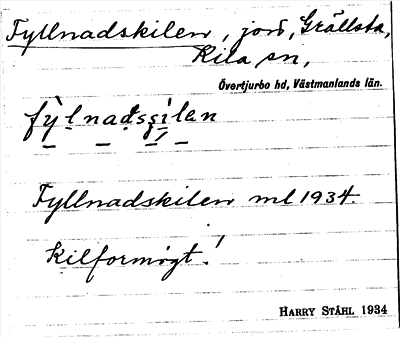 Fyllnadskilen, jord, Grällsta,
Kila sn,
Övertjurbo hd, Västmanlands län.
fỳlnadsşílen
Fyllnadskilen ml 1934.
Kilformigt!
HARRY STÅHL 1934